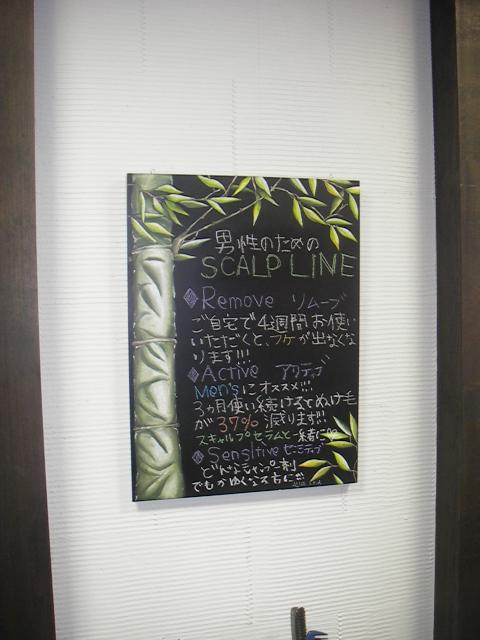 男性のための
SCALP LINE
Remove リムーブ
ご自宅で4週間お使い
いただくと、フケが出なくな
ります!!!
Active アクティブ
Men'sにオススメ!!!
3ヵ月使い続けるとぬけ毛
が37%減ります!!!
スキャルプセラムと一緒に
Sensitive センシティブ
どんなシャンプー剤
でもかゆくなる方に